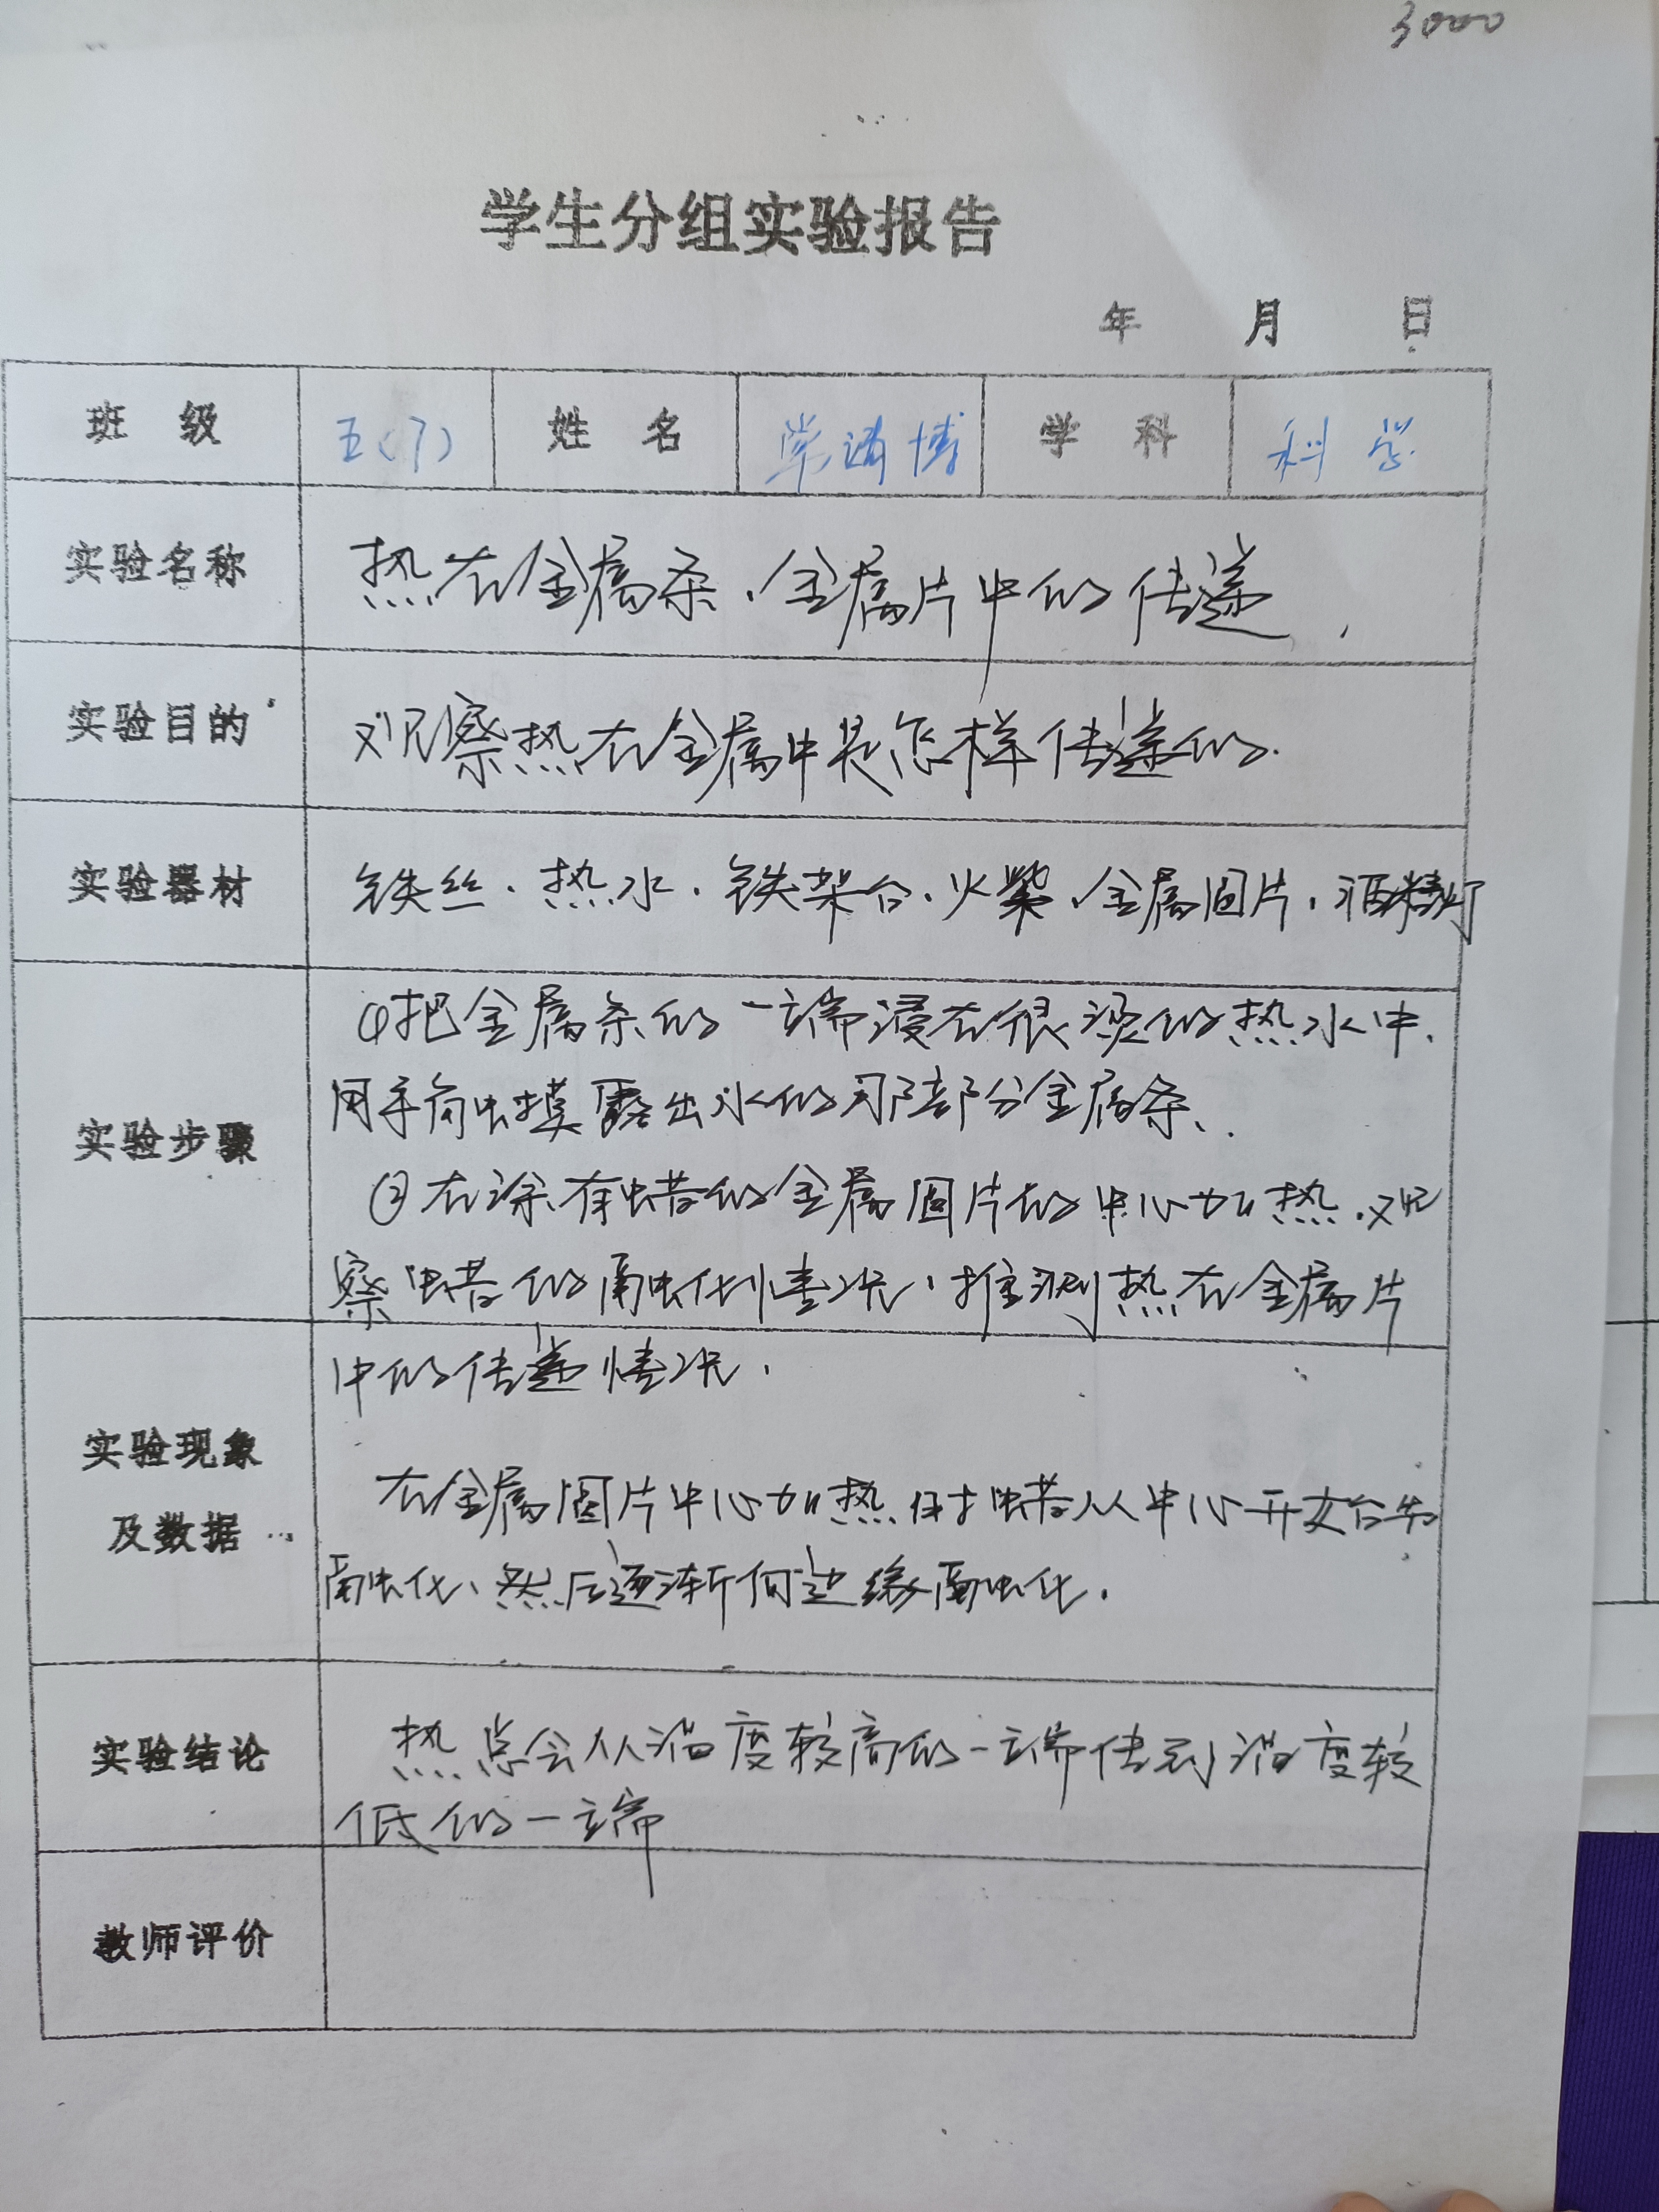 3000
学生分组实验报告
年 月 日
班 级 五(7) 姓 名 博 学 科 科学
实验名称 热在金属条、金属片中的传递.
实验目的 观察热在金属中是怎样传递的.
实验器材 铁丝、热水、铁架台、火柴、金属圆片、酒精灯
①把金属条的一端浸在很烫的热水中.
用手触摸露出水的那部分金属条、
实验步骤
②在涂有蜡的金属圆片的中心加热.观
察蜡的融化情况、推测热在金属片
中的传递情况.
实验现象
及数据
在金属圆片中心加热时蜡从中心开始
融化、然后逐渐向边缘融化.
实验结论
热总会从温度较高的一端传到温度较
低的一端
教师评价